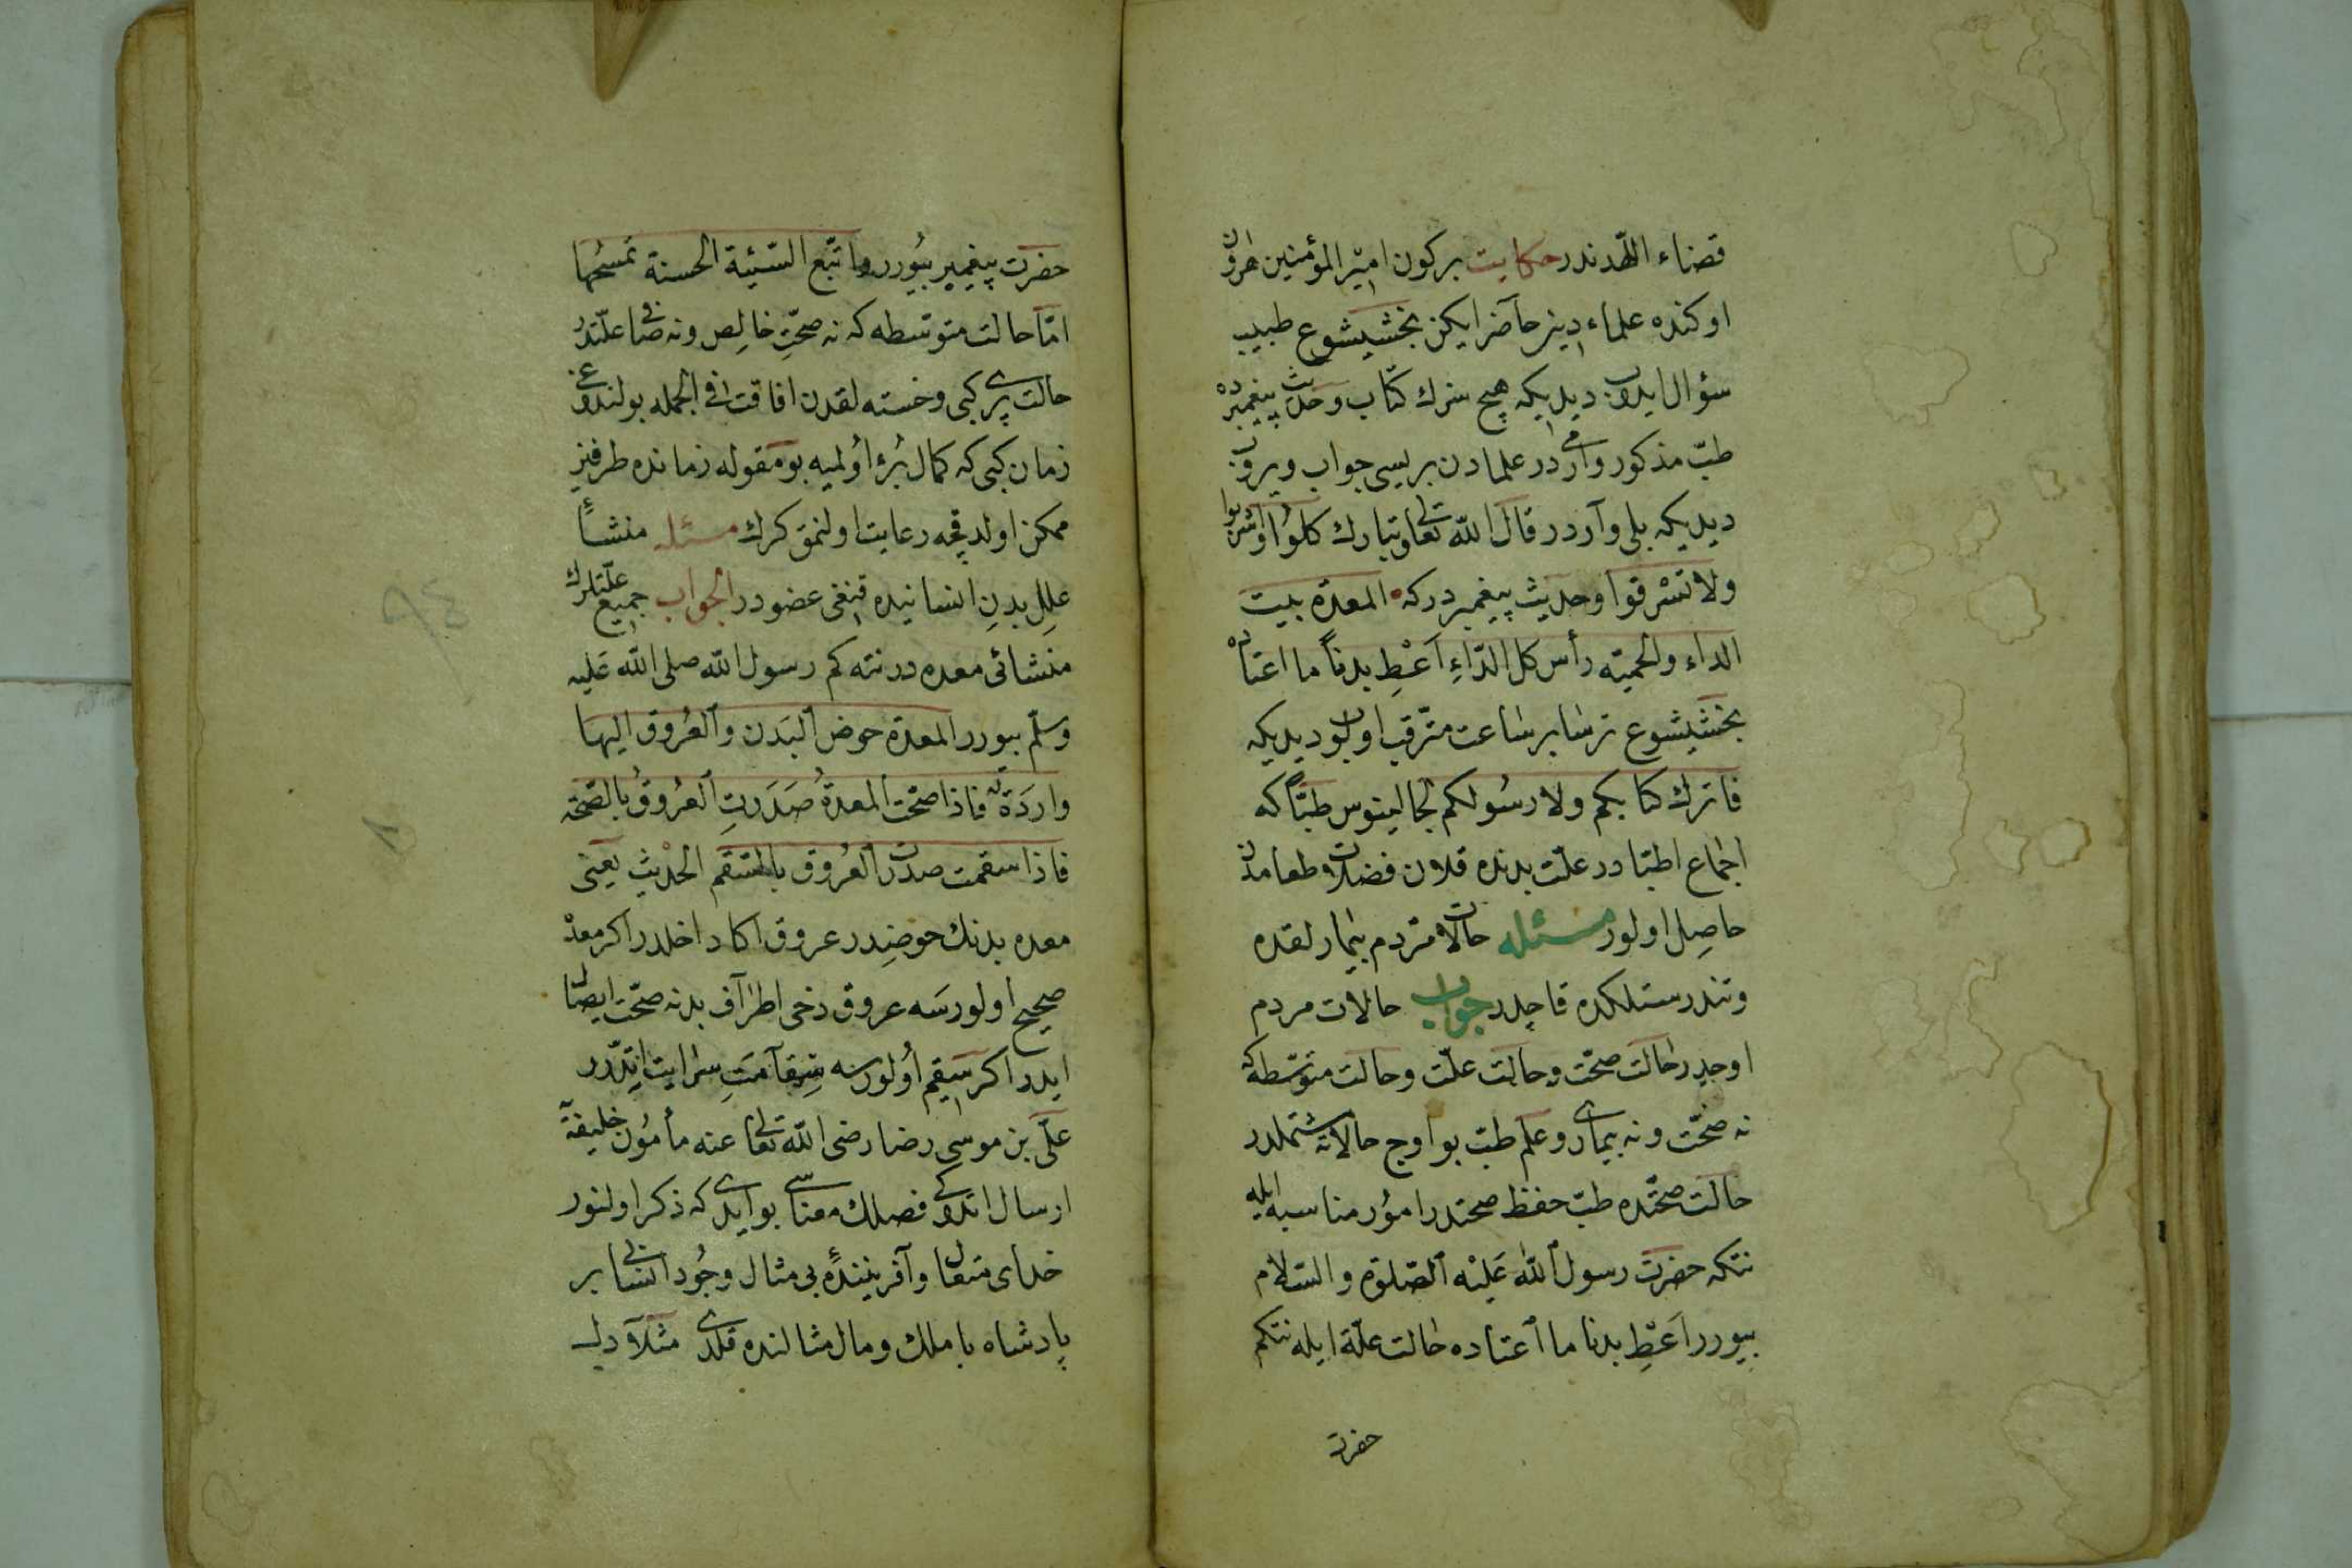 قضاء اللّهدندر حكايت بركون امير المؤمنين هارون
اوكنده علماء دينز حاضر ايكن بخشيشوع طبيب
سؤال ايدوب ديديكه هيچ سزك كتاب وحديث پيغمبرده
طبّ مذكور وارمى در علمادن بريسى جواب ويروب
ديديكه بلى وآردر قال اللّه تعالى وتبارك كلوا واشربوا
ولا تسرفوا وحديث پيغمبر دركه المعدة بيت
الداء والحميّه رأس كل الدّاءِ اَعْطِ بدناً ما اعتاده
بخشيشوع ترسا بر ساعت مترقب اولوب ديديكه
فاترك كتابكم ولا رسولكم لجالينوس طبّاً كه
اجماع اطبّادر علّت بدنده قلان فضلات طعامدن
حاصِل اولور مسئله حالات مردم بيمارلقده
وتندرستلكده قاچدر جواب حالات مردم
اوجدر حالت صحّت وحالت علّت وحالت متوسّطه كه
نه صحّت ونه بيمارى وعلم طبّ بو اوج حالاته مشتملدر
حالت صحّتده طبّ حفظ صحتدر امور مناسبه ايله
نتكه حضرت رسول اللّه عَليْه الصّلوة والسّلام
بيورر اَعْطِ بدنا ما اعتاده حالت علّة ايله نتكم
حضرت
حضرت پيغمبر بيورر واتبّع السّيئة الحسنة تمسحُها
امّا حالت متوسّطه كه نه صحّتِ خالِص ونه صافى علّتدر
حالت پيرى كبى وخسته لقدن افاقت فى الجمله بولندوغى
زمان كبى كه كمال بُرؤ اُولميه بو مقوله زمانده طرفينِ
ممكن اولدقچه رعايت اولنمق كرك مسئله منشأ
عللِ بدنِ انسانيده قنغى عضودر الجواب جميع علّتلرك
منشائى معده در نته كم رسول اللّه صلى اللّه عَليه
وسلّم بيورر المعدة حوض البَدن والعُروق اليها
واردَة فاذا صحّت المعدةُ صَدَرتِ العُروقُ بالصّحّة
فاذا سقمت صدرت العُروق بالسّقم الحديث يعنى
معده بدنك حوضِدر عروق اكا داخلدر اكر معده
صحيح اولورسَه عروق دخى اطرآف بدنه صحّت ايصال
ايدر اكر سقيم اُولورسه سِقآمَتِ سرايت ايتدّرر
على بن موسى رضا رضى اللّه تعالى عنه مأمُون خليفة
ارسال اتدوكى فصلك معناسى بوايدى كه ذكر اولنور
خداى متعال وآفرينندهٔ بى مثال وجُود انسانى بر
پادشاه با ملك ومال مثالنده قلدى مثلآ دل